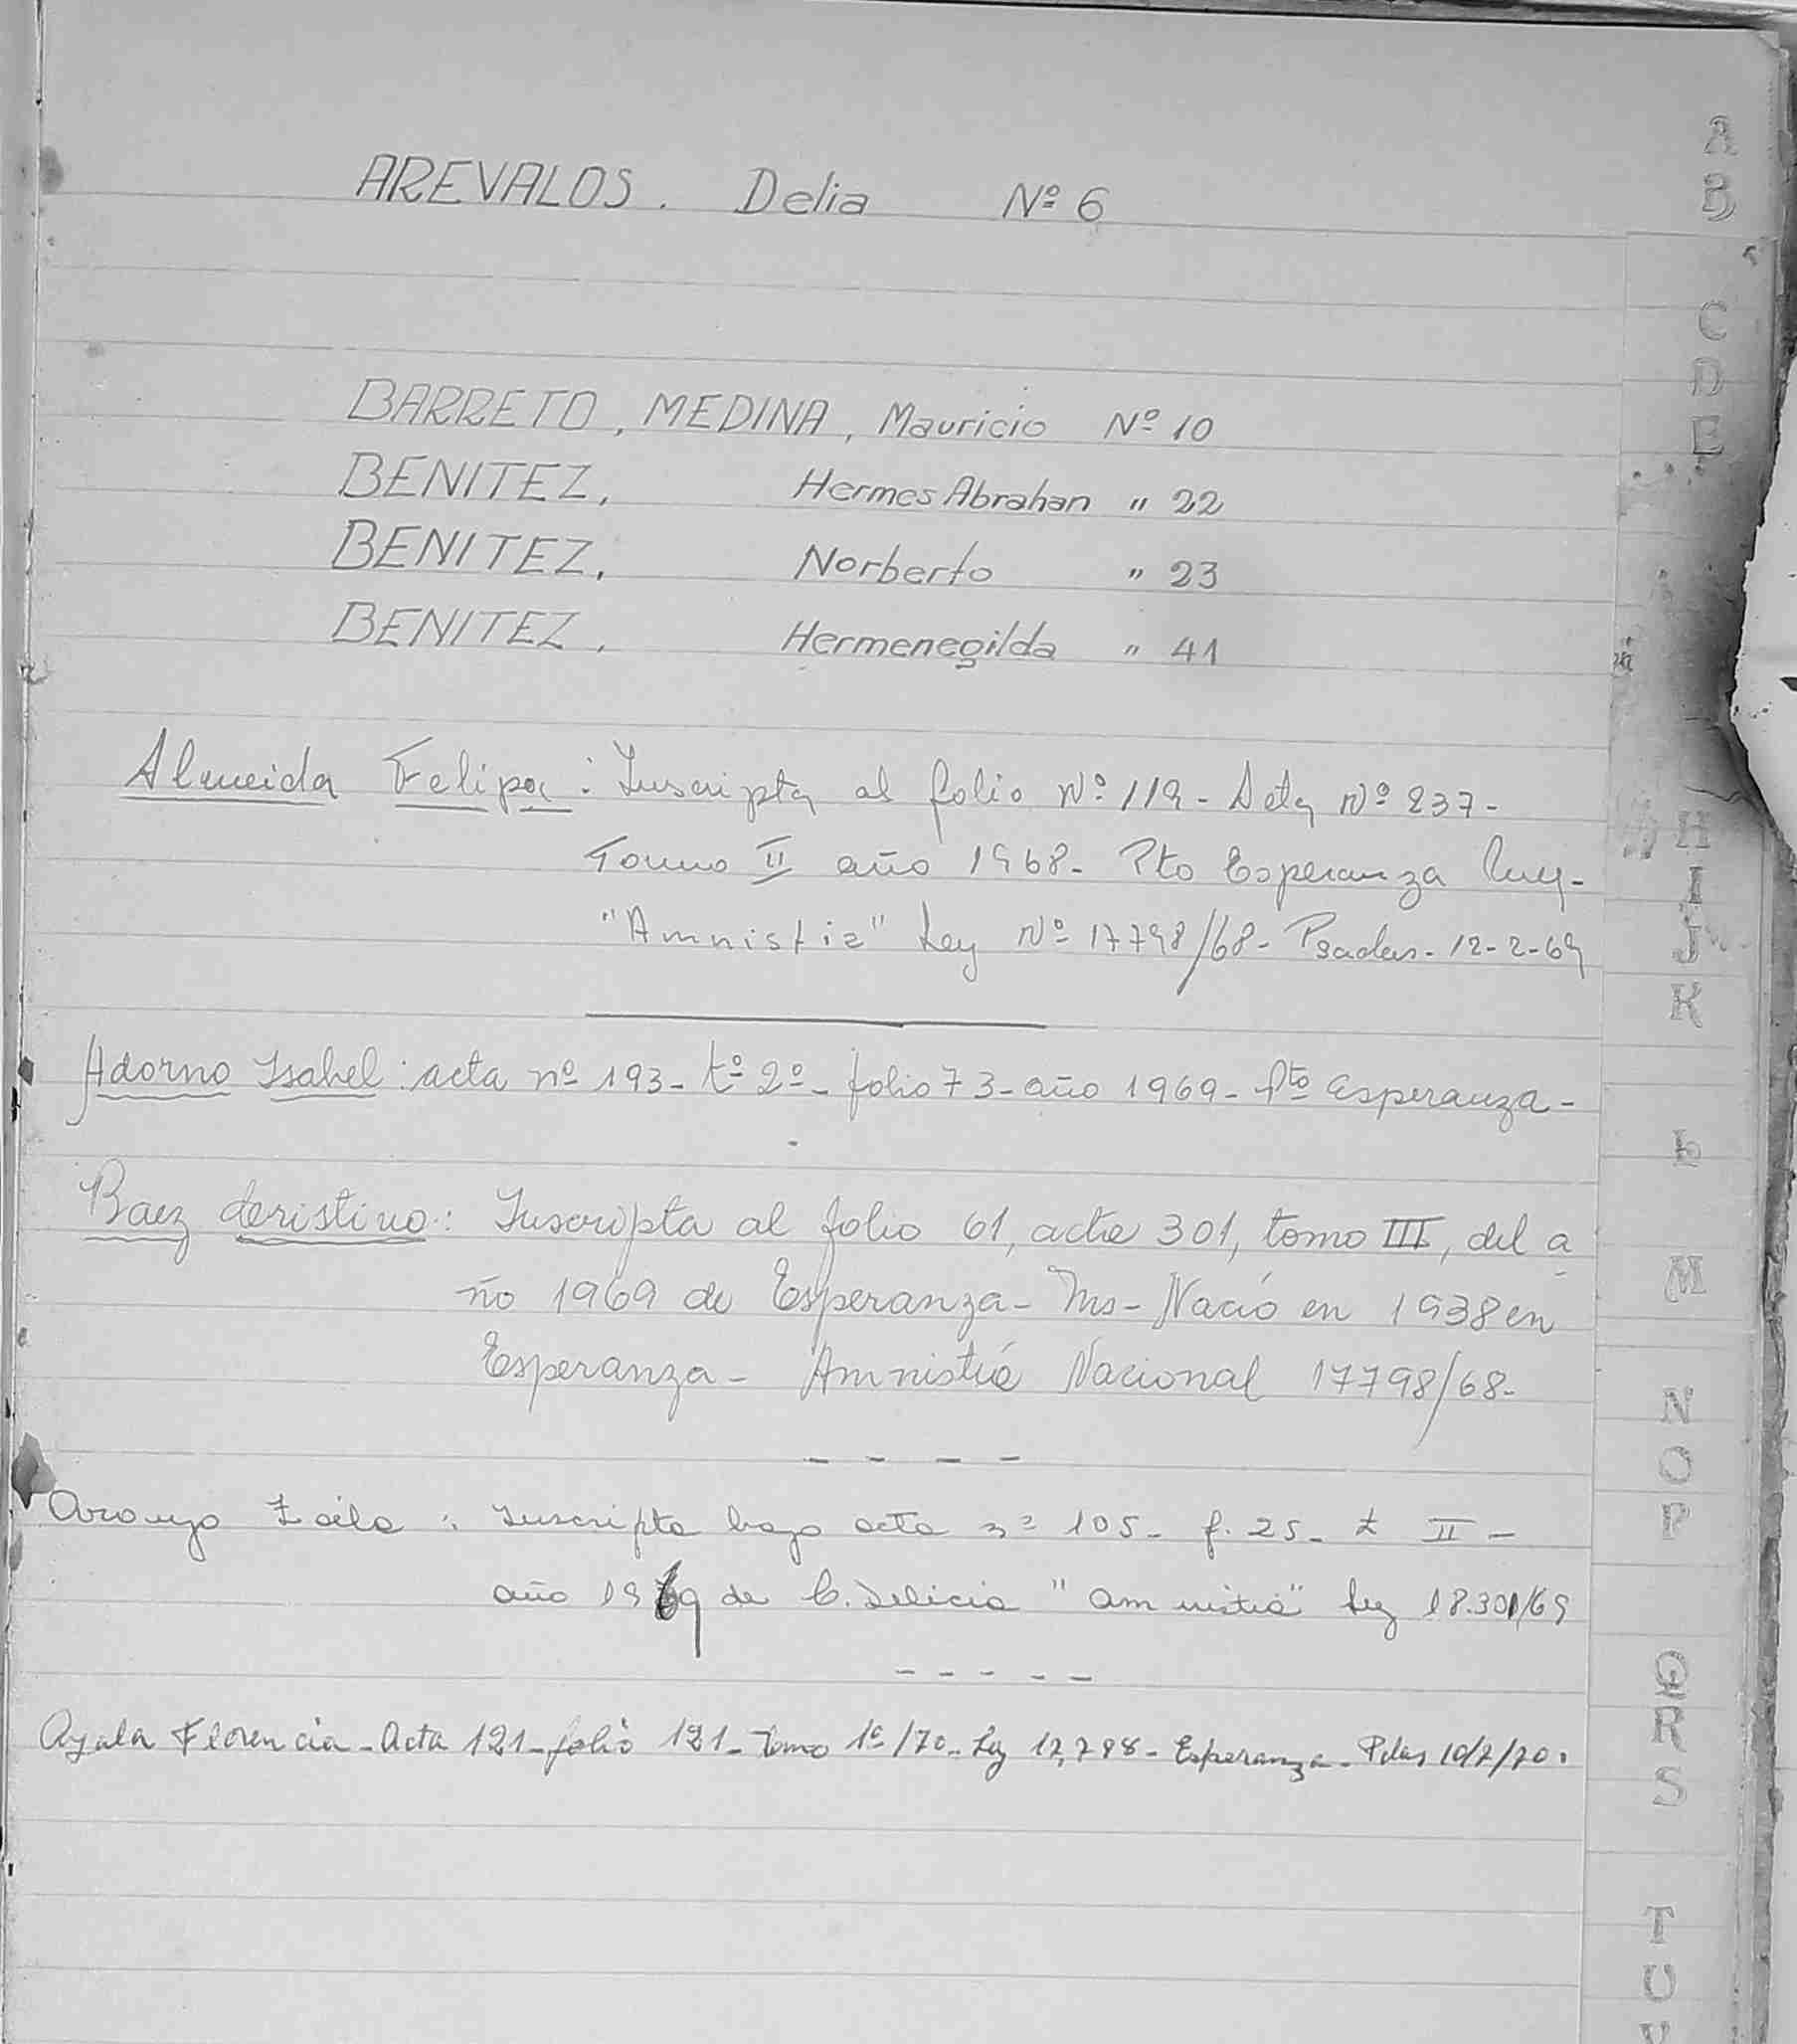 AREVALOS. Delia Nº 6
BARRETO, MEDINA, Mauricio Nº 10
BENITEZ, Hermes Abrahan " 22
BENITEZ, Norberto " 23
BENITEZ, Hermenegilda " 41
Almeida Felipa: Inscripta al folio Nº 119- Acta Nº 237-
Tomo II año 1968- Pto Esperanza
"Amnistia" Ley Nº 17798/68- Psadas- 12-2-69
Adorno Isabel: acta nº 193- tº 2º- folio 73- año 1969- Pto Esperanza-
Baez: Inscripta al folio 61, acta 301, tomo III, del a
ño 1969 de Esperanza- Ms- Nació en 1938 en
Esperanza- Amnistía Nacional 17798/68-
Araujo Zoila: Inscripta bajo acta nº 105- f. 25- t II-
año 1969 de C. Delicia "Amnistia" Ley 18.301/69
Ayala Florencia- Acta 121- folio 121- Tomo 1º/70- Ley 17,798- Esperanza- Pdas 10/7/70.
A
B
C
D
E
H
I
J
K
L
M
N
O
P
Q
R
S
T
U
V